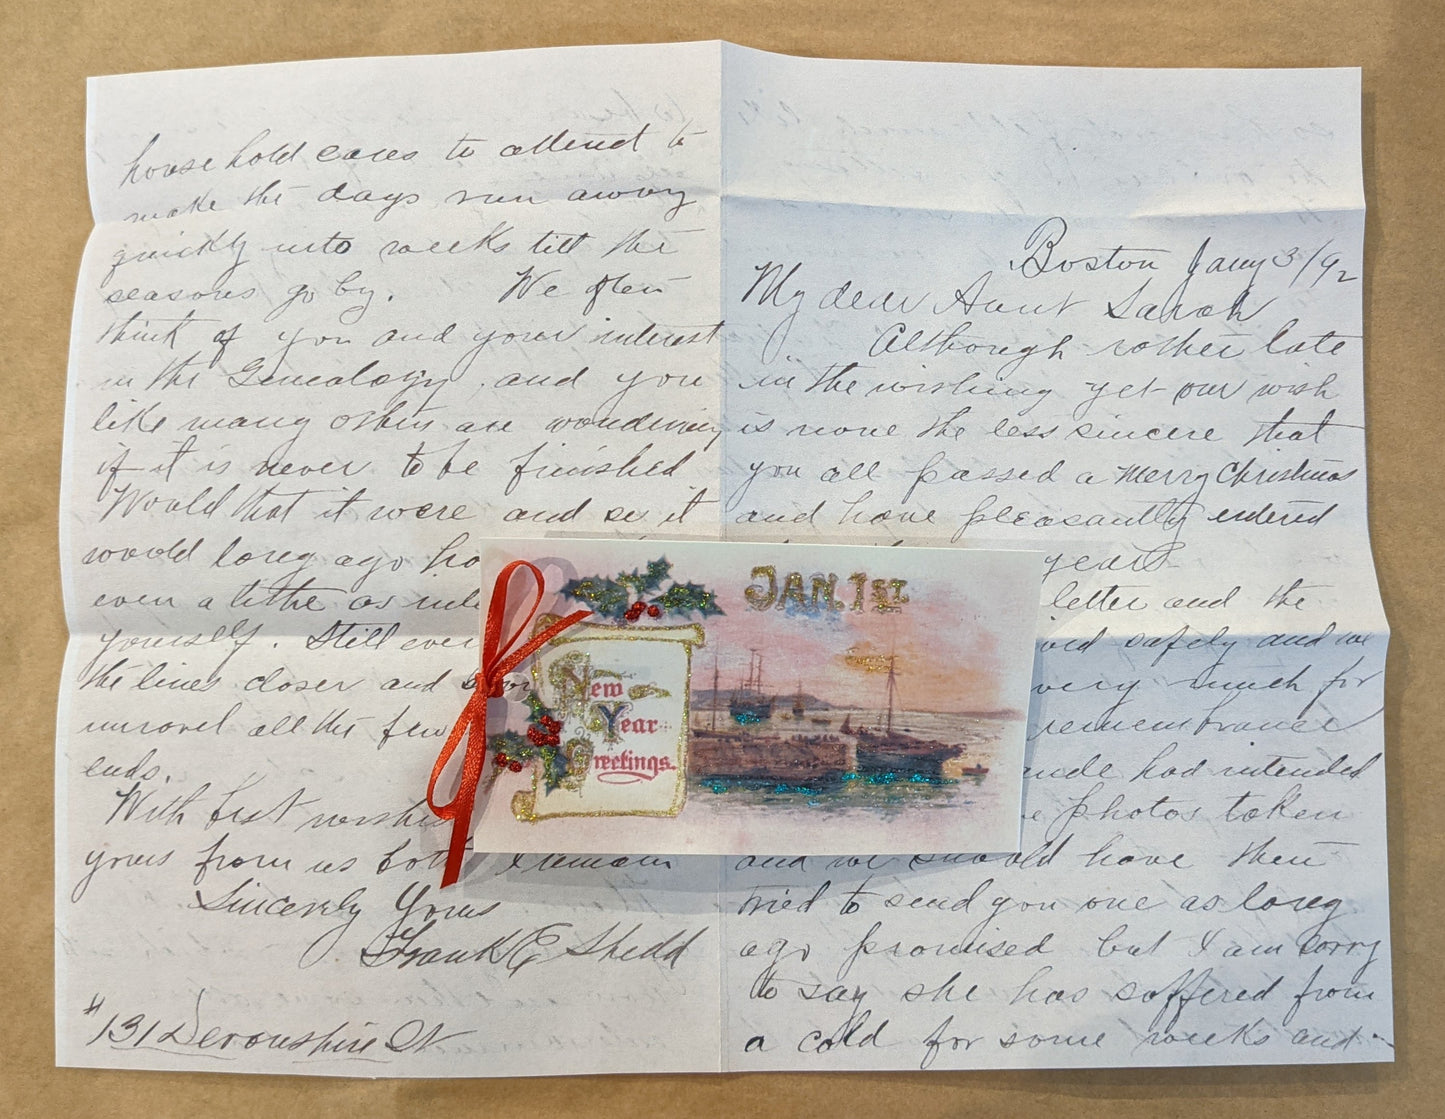 Boston Jany 3/92
My dear Aunt Sarah
Although rather late
in the wishing yet our wish
is none the less sincere that
you all passed a Merry Christmas
and have pleasantly entered
years
letter and the
safely and we
very much for
remembrance
had intended
photos taken
and we should have then
tried to send you one as long
ago promised but I am sorry
to say she has suffered from
a cold for some weeks and
household cares to attend to
make the days run away
quickly into weeks till the
seasons go by. We often
think of you and your interest
in the Genealogy, and you
like many others are wondering
if it is never to be finished
Would that it were and so it
would long ago
even a tithe as
yourself. Still
the lines closer and
unravel all the few
ends.
With best wishes
yours from us both I remain
Sincerely Yours
Frank E Shedd
# 131 Devonshire St
JAN. 1ST.
New
Year
Greetings.